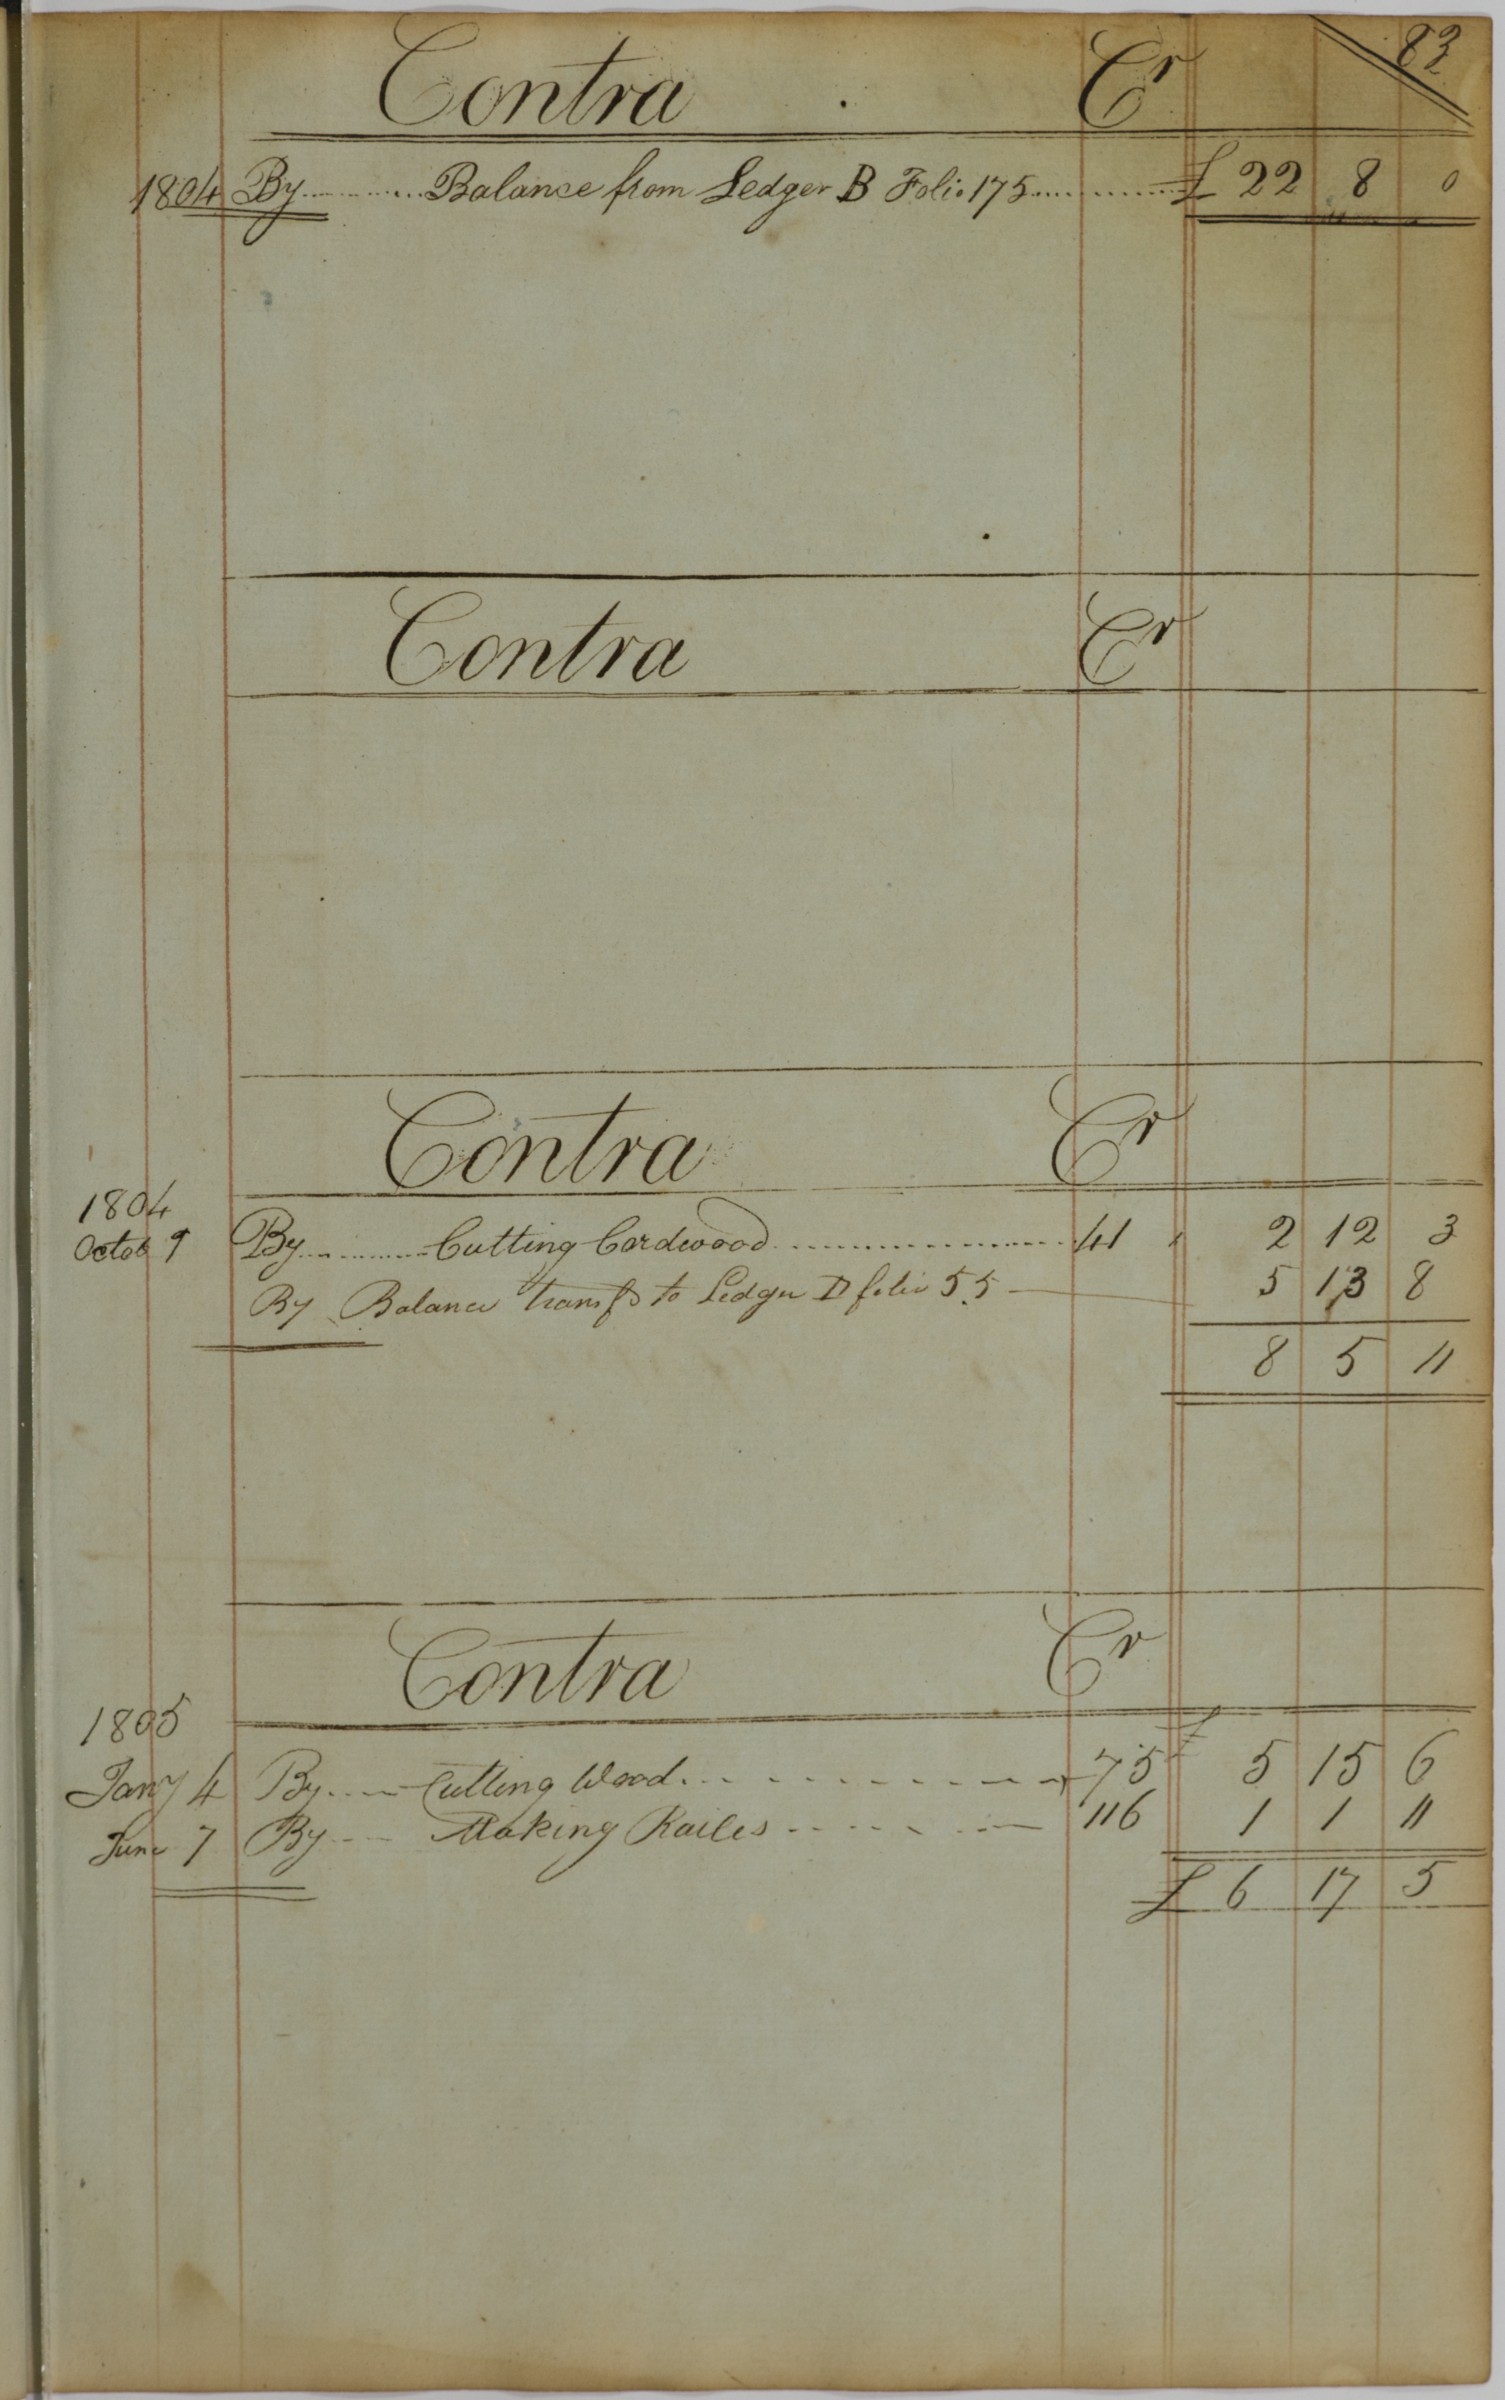 83
Contra Cr
1804 By Balance from Ledger B Folio 175 £ 22 8 0
Contra Cr
Contra Cr
1804
Octob 9 By Cutting Cordwood 41 2 12 3
By Balance transfd to Ledger D folio 55 5 13 8
8 5 11
Contra Cr
1805
£
Jany 4 By Cutting Wood 75 5 15 6
June 7 By Making Railes 116 1 1 11
£ 6 17 5